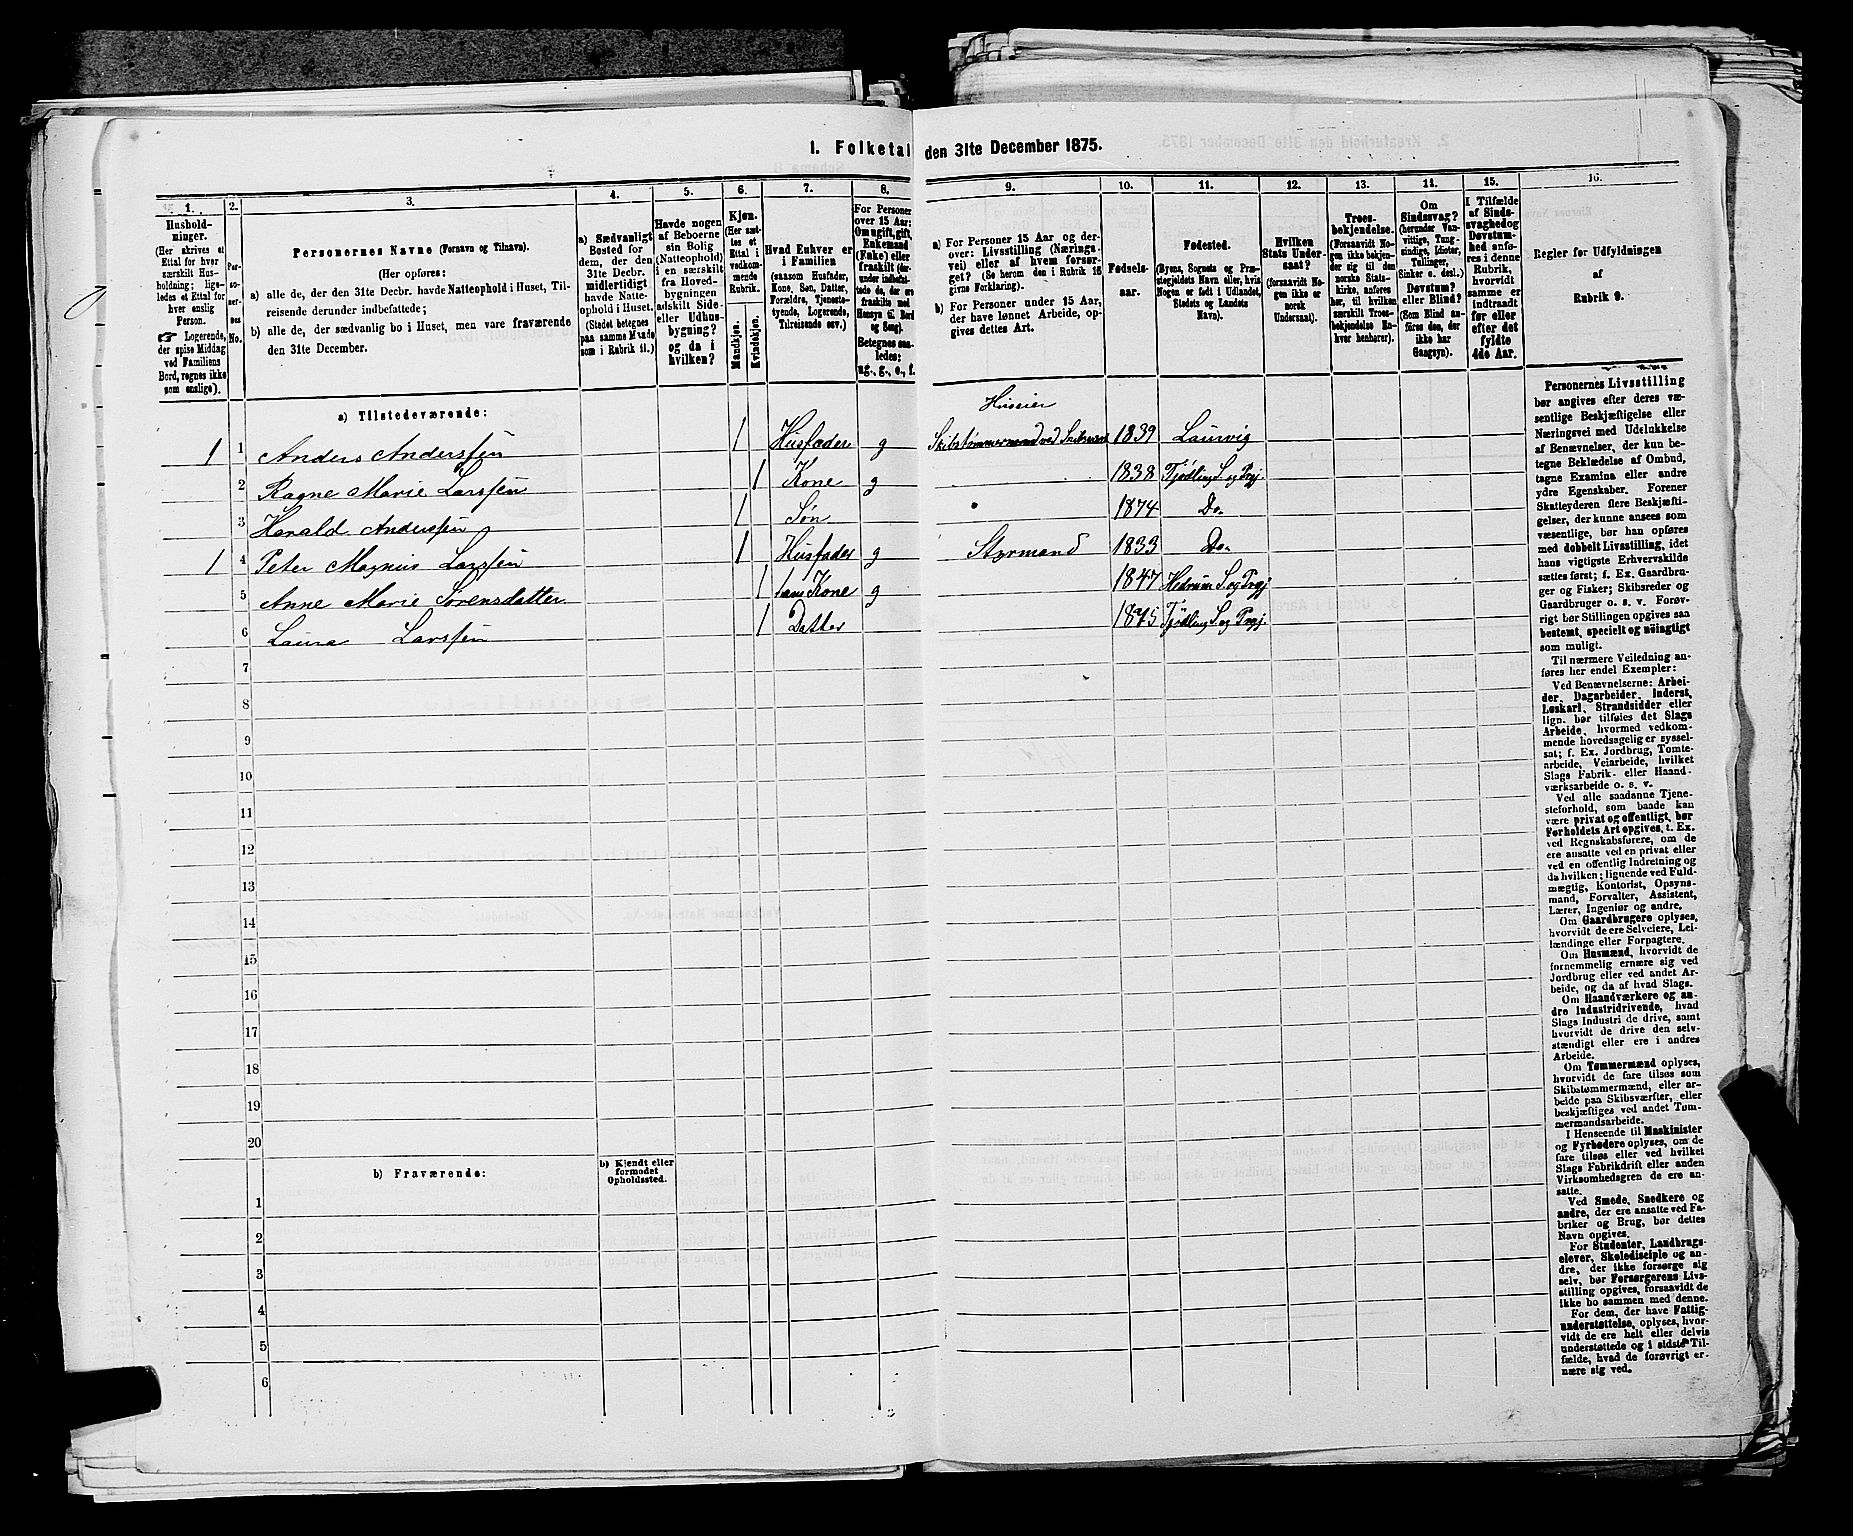 1. Folketal den 31te December 1875.
1. 2. 3. 4. 5. 6. 7. 8. 9. 10. 11. 12. 13. 14. 15. 16.
Husholdninger.
(Her skrives et
Ettal for hver
særskilt Husholdning;
ligeledes et Ettal for
hver enslig
Person.
☞ Logerende,
der spise Middag
ved Familiens
Bord, regnes ikke
som enslige).
Personernes No.
Personernes Navne (Fornavn og Tilnavn).
(Her opføres:
a) alle de, der den 31te Decbr. havde Natteophold i Huset, Tilreisende
derunder indbefattede;
b) alle de, der sædvanlig bo i Huset, men vare fraværende
den 31te December.
a) Sædvanligt
Bosted for
dem, der den
31te Decbr.
midlertidigt
havde Natteophold
i Huset.
(Stedet betegnes
paa samme Maade
som i Rubrik 11.)
Havde nogen
af Beboerne
sin Bolig
(Natteophold)
i en særskilt
fra Hovedbygningen
adskilt Side-
eller Udhusbygning?
og da i
hvilken?
Kjøn.
(Her sættes
et Ettal i
vedkommende
Rubrik.
Mandkjøn.
Kvindekjøn.
Hvad Enhver er
i Familien
(saasom Husfader,
Kone, Søn, Datter,
Forældre, Tjenestetyende,
Logerende,
Tilreisende osv.)
For Personer
over 15 Aar:
Om ugift, gift,
Enkemand
(Enke) eller
fraskilt (derunder
indbefattede
de, der ere
fraskilte med
Hensyn til Bord
og Seng).
Betegnes saaledes:
ug., g., e., f.
a) For Personer 15 Aar og derover:
Livsstilling (Næringsvei)
eller af hvem forsørget?
(Se herom den i Rubrik 16
givne Forklaring).
b) For Personer under 15 Aar,
der have lønnet Arbeide, opgives
dettes Art.
Fødselsaar.
Fødested.
(Byens, Sognets og Præstegjeldets
Navn eller, hvis
Nogen er født i Udlandet,
Stedets og Landets
Navn).
Hvilken
Stats Undersaat?
(forsaavidt Nogen
ikke er
norsk
Undersaat).
Troesbekjendelse.
(Forsaavidt Nogen
ikke bekjender
sig til den
norske Statskirke,
anføres
her, til hvilken
særskilt Troesbekjendelse
Enhver
henhører).
Om
Sindssvag?
(herunder Vanvittige,
Tungsindige,
Idioter,
Tullinger,
Sinker o. desl.)
Døvstum?
eller Blind?
(Som Blind anføres
den, der
ikke har
Gangsyn).
I Tilfælde
af Sindssvaghed
og
Døvstumhed
anføres
i denne
Rubrik,
hvorvidt
samme er
indtraadt
før eller
efter det
fyldte
4de Aar.
Regler for Udfyldningen
af
Rubrik 9.
a) Tilstedeværende:
Huseier
1 1 Anders Andersen 1 Husfader g Skibstømmermand ved Skibsværft 1839 Laurvig
2 Ragne Marie Larssen 1 Kone g 1838 Tjødling S. og Prgj.
3 Harald Anderssen 1 Søn 1874 Do-
1 4 Peter Magnus Larssen 1 Husfader g Styrmand 1833 Do-
5 Anne Marie Sørensdatter 1 hans Kone g 1847 Hedrum S. og Prgj
6 Laura Larssen 1 Datter 1875 Tjødling S. og Prgj.
7
8
9
10
11
12
13
14
15
16
17
18
19
20
b) Fraværende:
b) Kjendt eller
formodet
Opholdssted.
1
2
3
4
5
6
Personernes Livsstilling
bør angives efter deres væsentlige
Beskjæftigelse eller
Næringsvei med Udelukkelse
af Benævnelser, der kun betegne
Beklædelse af Ombud,
tagne Examina eller andre
ydre Egenskaber. Forener
Skatteyderen flere Beskjæftigelser,
der kunne ansees som
væsentlige, bør han opføres
med dobbelt Livsstilling, idet
hans vigtigste Erhvervskilde
sættes først; f. Ex. Gaardbruger
og Fisker; Skibsreder og
Gaardbruger o. s. v. Forøvrigt
bør Stillingen opgives saa
bestemt, specielt og nöiagtigt
som muligt.
Til nærmere Veiledning anføres
her endel Exempler:
Ved Benævnelserne: Arbeider,
Dagarbeider, Inderst,
Løskarl, Strandsidder eller
lign. bør tilføies det Slags
Arbeide, hvormed vedkommende
hovedsagelig er sysselsat;
f. Ex. Jordbrug, Tomtearbeide,
Veiarbeide, hvilket
Slags Fabrik- eller Haandværksarbeide
o. s. v.
Ved alle saadanne Tjenesteforhold,
som baade kan
være privat og offentligt, bør
Forholdets Art opgives, t. Ex.
ved Regnskabsførere, om de
ere ansatte ved en privat eller
ved en offentlig Indretning og
da hvilken; lignende ved Fuldmægtig,
Kontorist, Opsynsmand,
Forvalter, Assistent,
Lærer, Ingeniør og andre.
Om Gaardbrugere oplyses,
hvorvidt de ere Selveiere, Leilændinge
eller Forpagtere.
Om Husmænd, hvorvidt de
fornemmelig ernære sig ved
Jordbrug eller ved andet Arbeide,
og da af hvad Slags.
Om Haandværkere og andre
Industridrivende, hvad
Slags Industri de drive, samt
hvorvidt de drive den selvstændigt
eller ere i andres
Arbeide.
Om Tømmermænd oplyses,
hvorvidt de fare tilsøs som
Skibstømmermænd, eller arbeide
paa Skibsværfter, eller
beskjæftiges ved andet Tømmermandsarbeide.
I Henseende til Maskinister
og Fyrbødere oplyses, om de
fare tilsøs eller ved hvilket
Slags Fabrikdrift eller anden
Virksomhedsgren de ere ansatte.
Ved Smede, Snedkere og
andre, der ere ansatte ved Fabriker
og Brug, bør dettes
Navn opgives.
For Studenter, Landbrugselever,
Skoledisciple og andre,
der ikke forsørge sig
selv, bør Forsørgerens Livsstilling
opgives, forsaavidt de
ikke bo sammen med denne.
For dem, der have Fattigunderstøttelse,
oplyses, hvorvidt
de ere helt eller delvis
understøttede og i sidste Tilfælde,
hvad de forøvrigt ernære
sig ved.